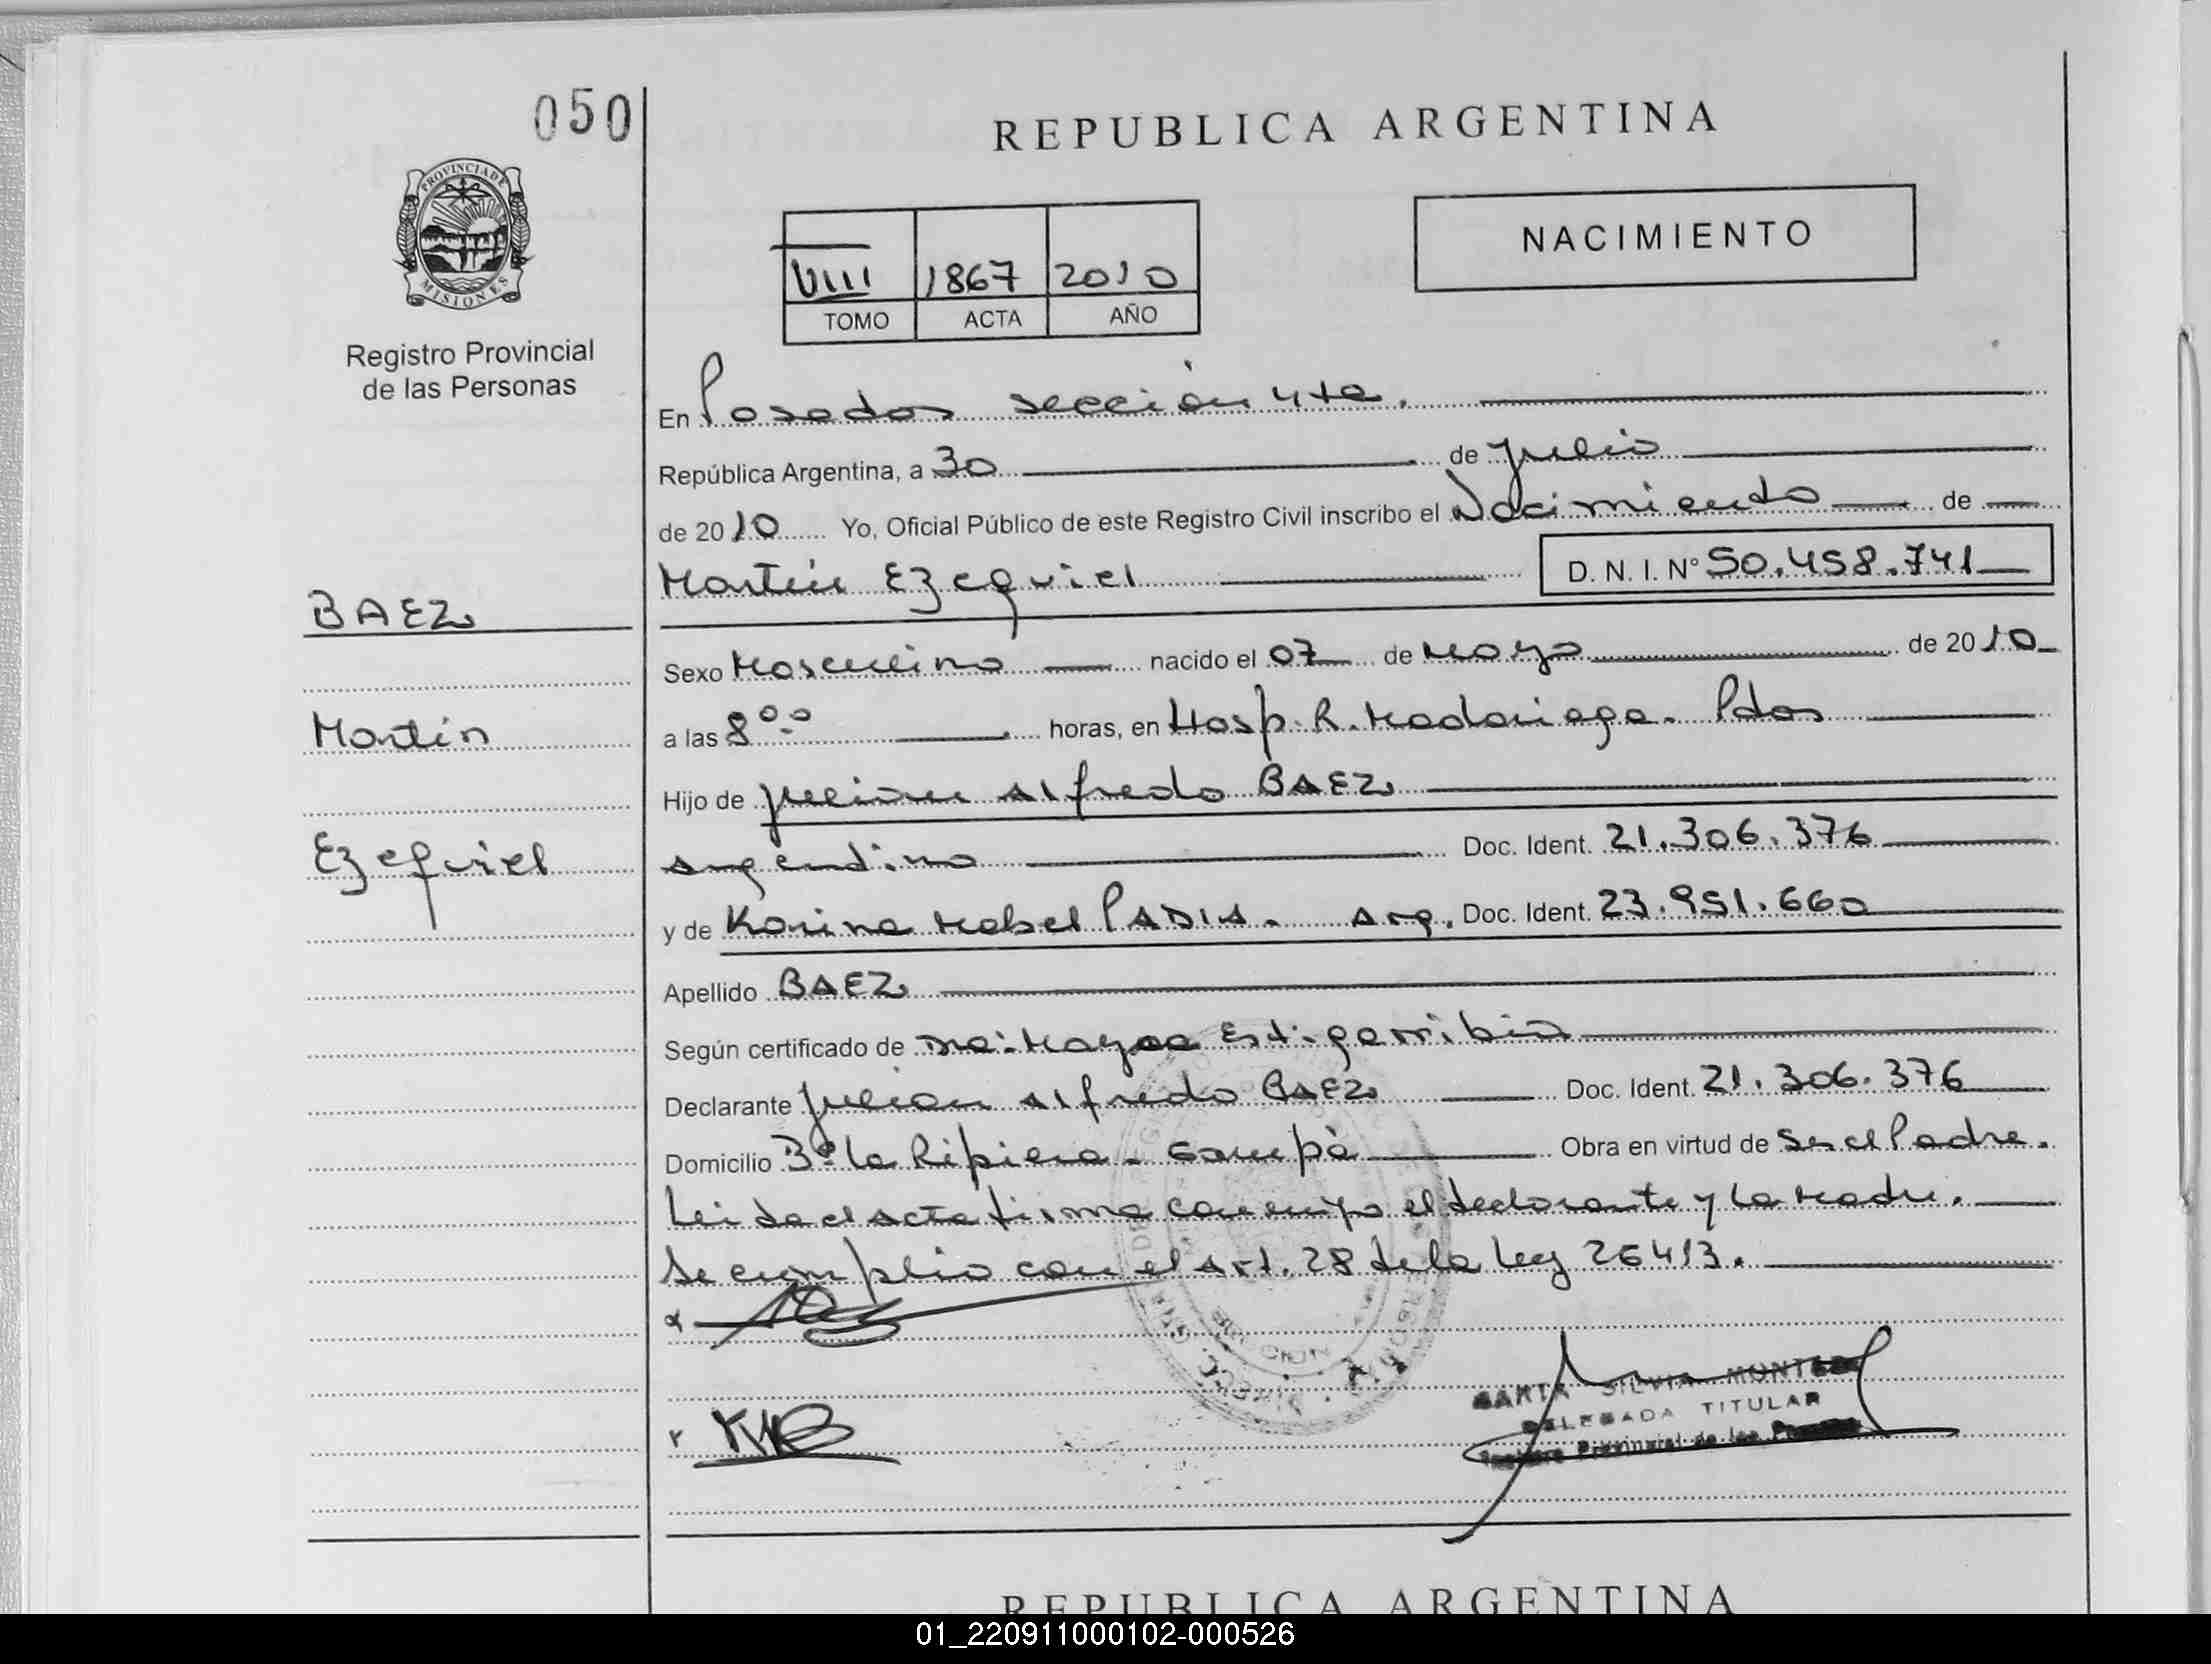 050
REPUBLICA ARGENTINA
PROVINCIA DE
MISIONES
Registro Provincial
de las Personas
NACIMIENTO
VIII 1867 2010
TOMO ACTA AÑO
En Posadas sección 4ta.
República Argentina, a 30 de Julio
de 2010 Yo, Oficial Público de este Registro Civil inscribo el Nacimiento de
Martín Ezequiel D. N. I. N° 50.458.741
BAEZ
Martín
Ezequiel
Sexo Masculino nacido el 07 de Mayo de 2010
a las 8°° horas, en Hosp. R. Madariaga. Pdas
Hijo de Julian Alfredo BAEZ
argentino Doc. Ident. 21.306.376
y de Karina Mabel PADIA. Arg. Doc. Ident. 23.951.660
Apellido BAEZ
Según certificado de Estigarribia
Declarante Julian Alfredo BAEZ Doc. Ident. 21.306.376
Domicilio B° la Ripiera - Garupá Obra en virtud de Ser el Padre.
Leida el acta firma conmigo el declarante y la Madre.
Se cumplio con el Art. 28 de la Ley 26413.
MARTA SILVIA MONTE
DELEGADA TITULAR
Provincial de las
REPUBLICA ARGENTINA
01_220911000102-000526